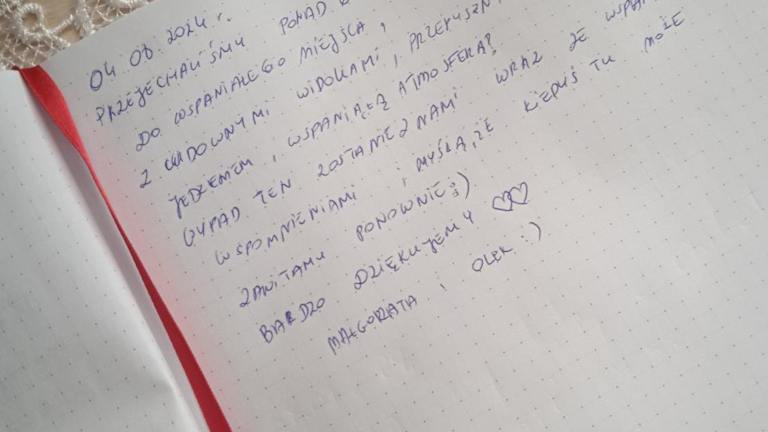 04.08.2024 r.
PRZEJECHALIŚMY PONAD
DO WSPANIAŁEGO MIEJSCA,
Z CUDOWNYMI WIDOKAMI, PRZEPYSZN
JEDZENIEM, WSPANIAŁĄ ATMOSFERĄ!
WYPAD TEN ZOSTANIE Z NAMI WRAZ ZE WSPA
WSPOMNIENIAMI I MYŚLĄ, ŻE KIEDYŚ TU MOŻE
ZAWITAMY PONOWNIE :)
BARDZO DZIĘKUJEMY ♡♡
MAŁGORZATA I OLEK :)